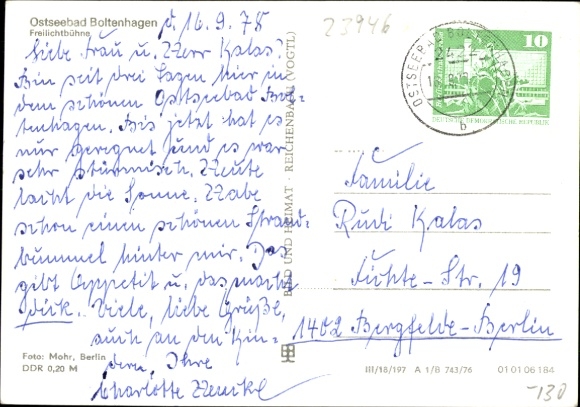 Ostseebad Boltenhagen
Freilichtbühne
d. 16.9.78
23946
Liebe Frau u. Herr Kalas!
Bin seit drei Tagen hier in
dem schönen Ostseebad Bol-
tenhagen. Bis jetzt hat es
nur geregnet und es war
sehr stürmisch. Heute
lacht die Sonne. Habe
schon einen schönen Strand-
bummel hinter mir. Das
gibt Appetit u. das macht
dick. Viele, liebe Grüße,
auch an den Kin-
dern, Ihre
Charlotte Henckel
Foto: Mohr, Berlin
DDR 0,20 M
BILD UND HEIMAT · REICHENBACH (VOGTL)
10
DEUTSCHE DEMOKRATISCHE REPUBLIK
OSTSEEBAD
b
Familie
Rudi Kalas
Fichte-Str. 19
1402 Bergfelde-Berlin
III/18/197 A 1/B 743/76 01 01 06 184
-130